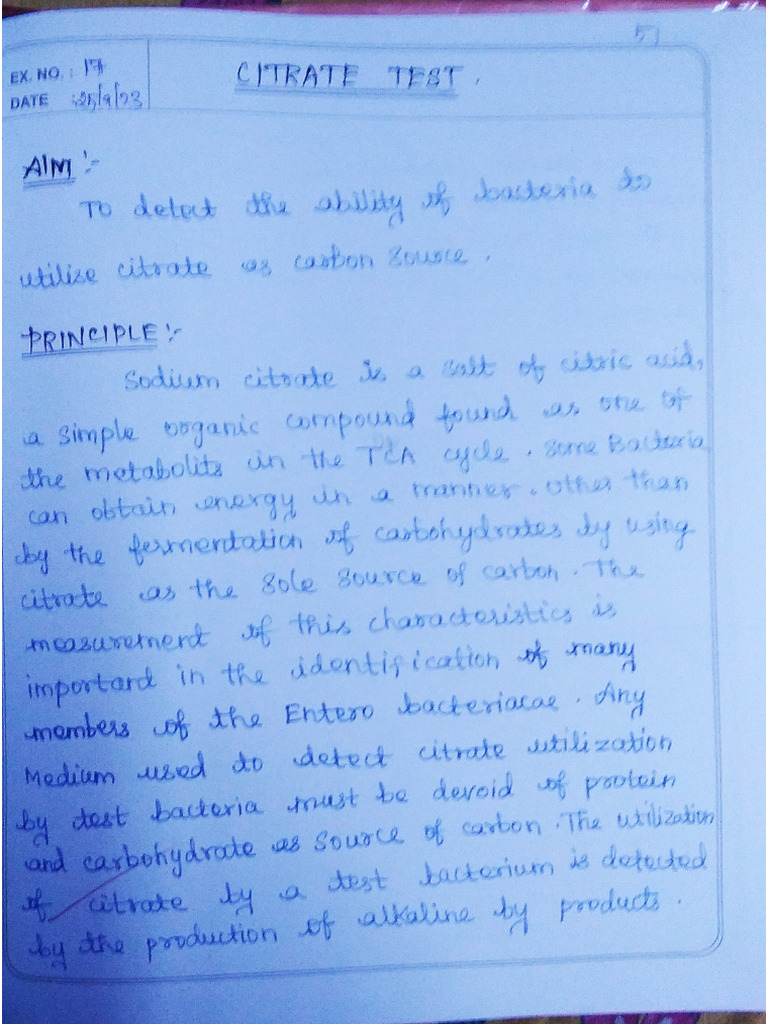 51
EX. NO. : 17
CITRATE TEST.
DATE :25/9/23
AIM :-
To detect the ability of bacteria to
utilise citrate as carbon source.
PRINCIPLE :-
Sodium citrate is a salt of citric acid,
a simple organic compound found as one of
the metabolits in the TCA cycle. Some Bacteria
can obtain energy in a manner. other than
by the fermentation of carbohydrates by using
citrate as the sole source of carbon. The
measurement of this characteristics is
important in the identification of many
members of the Entero bacteriacae. Any
Medium used to detect citrate utilization
by test bacteria must be devoid of protein
and carbohydrate as source of carbon. The utilization
of citrate by a test bacterium is detected
by the production of alkaline by products.